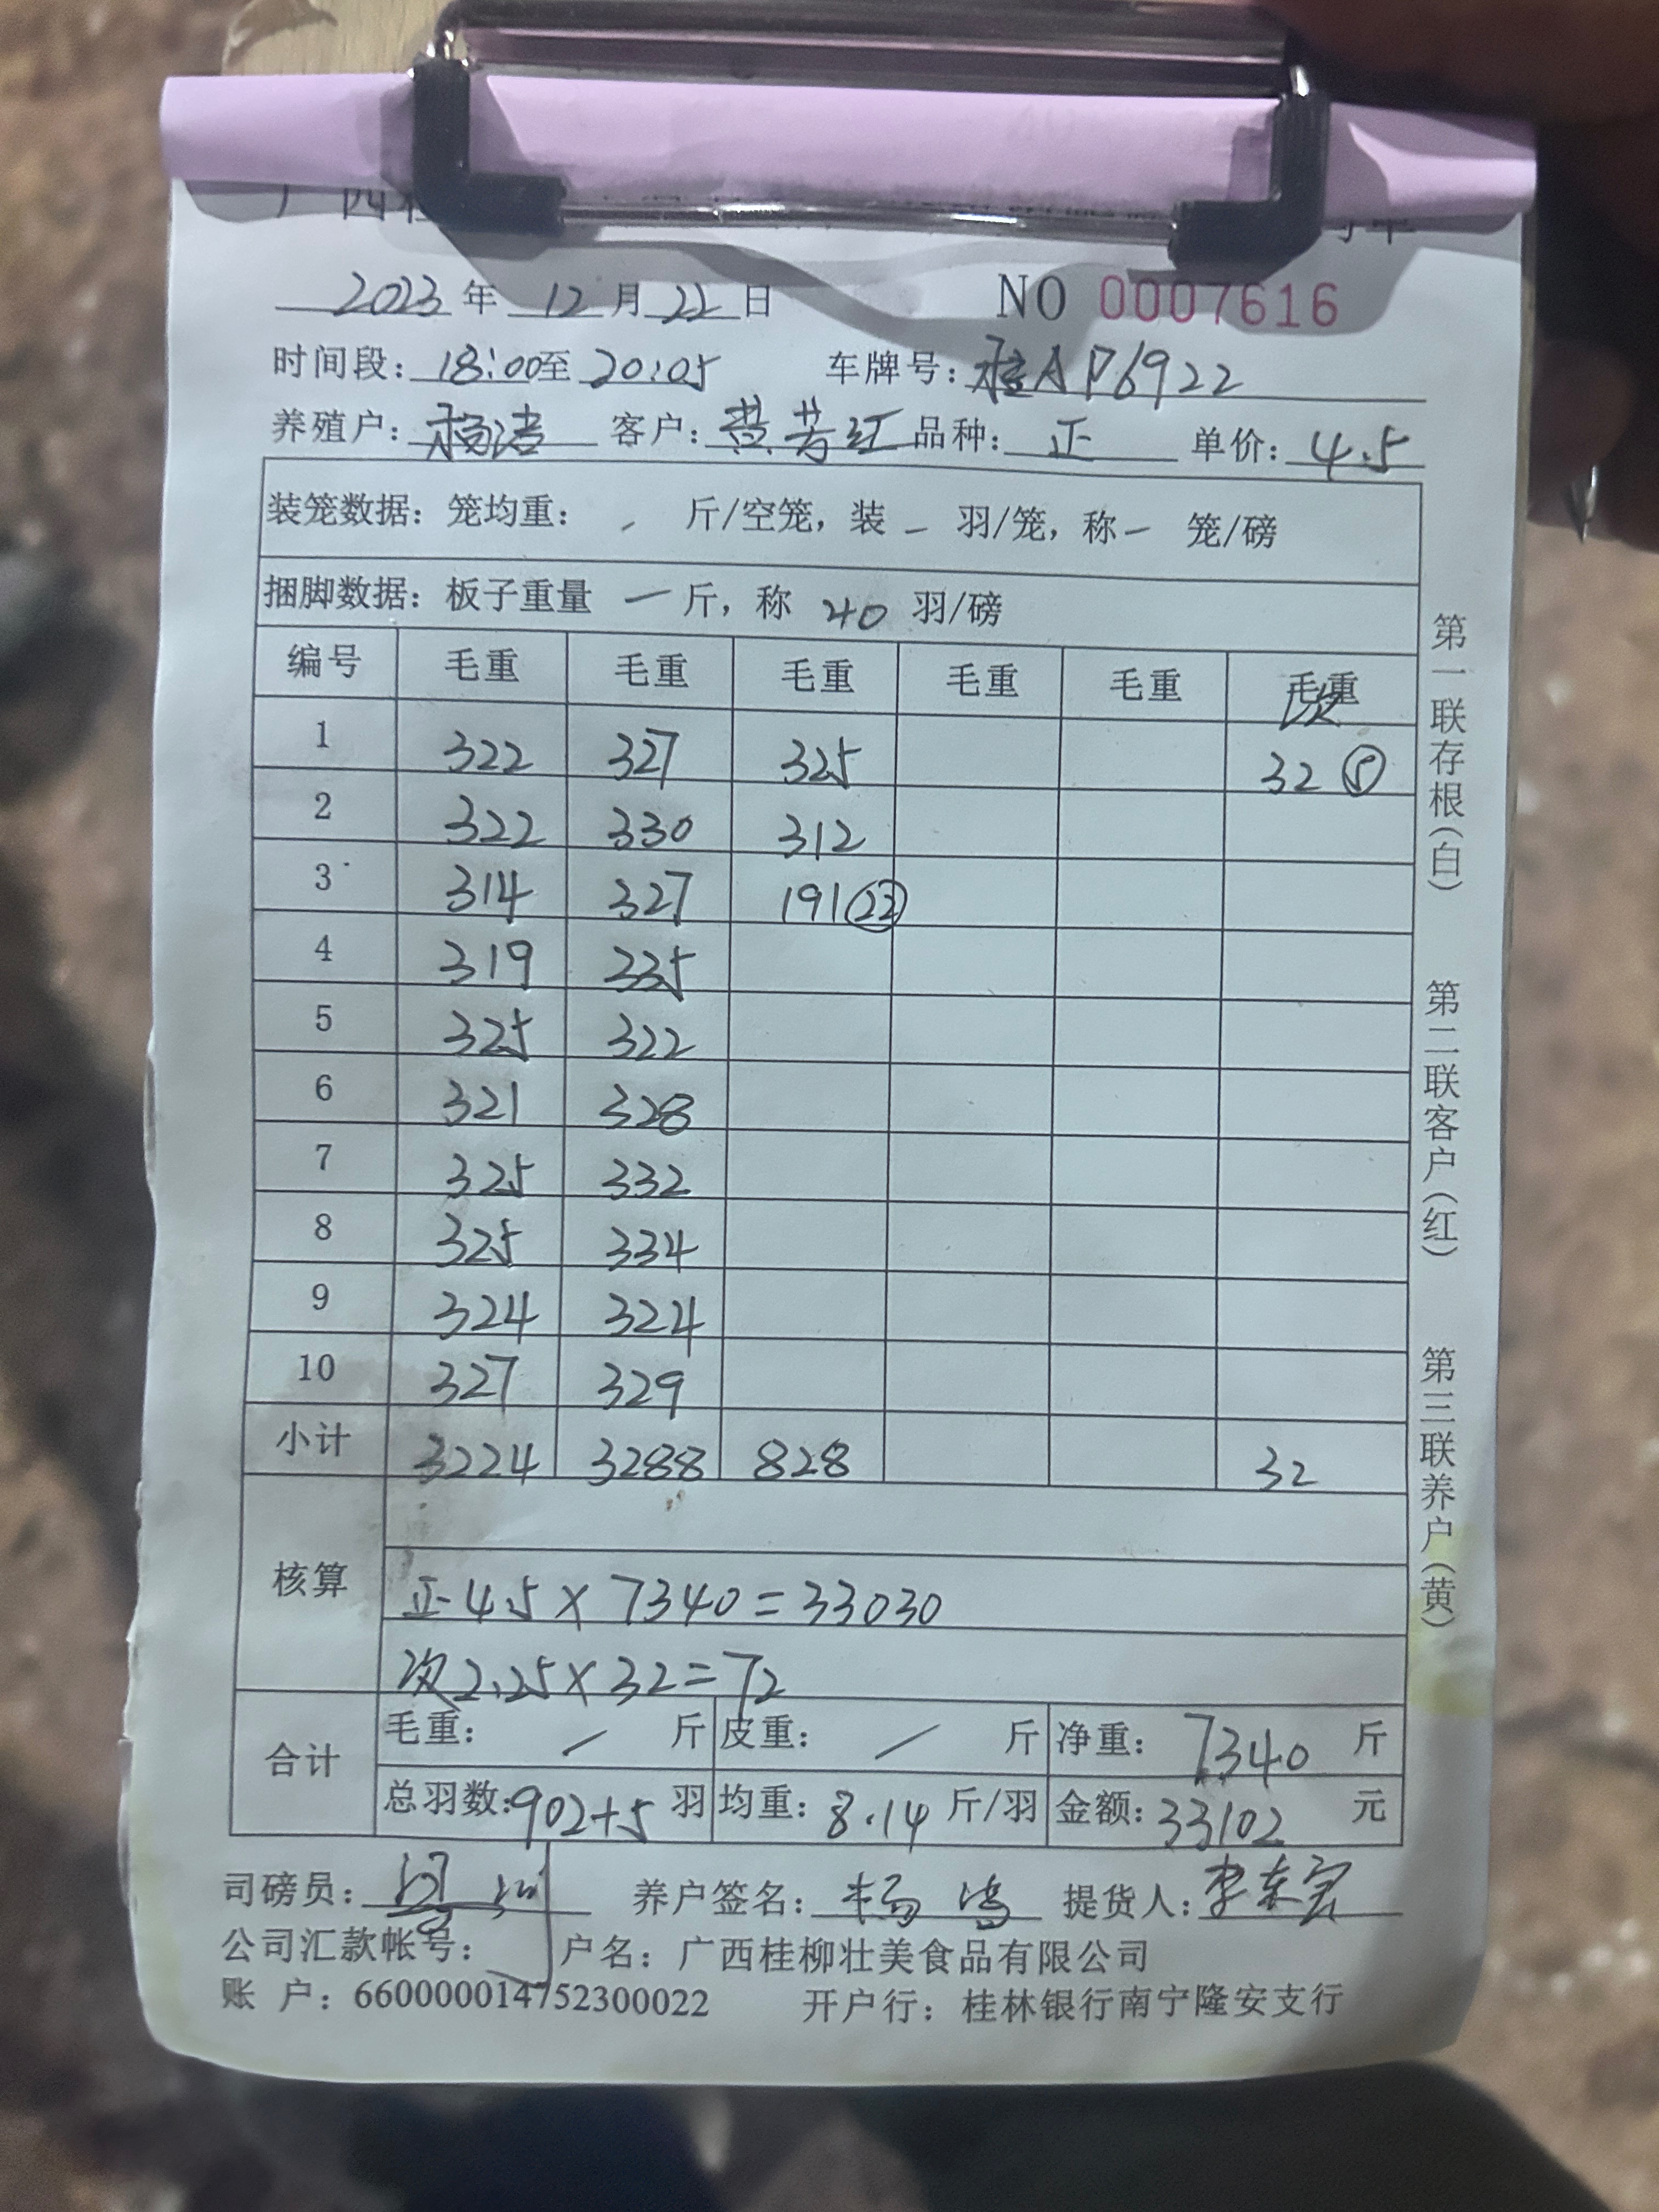 2023年 12月22日 NO 0007616
时间段: 18:00至 20:05 车牌号: 桂AP6922
养殖户: 杨 客户: 黄芳红 品种: 正 单价: 4.5
装笼数据: 笼均重: - 斤/空笼, 装 - 羽/笼, 称 - 笼/磅
捆脚数据: 板子重量 一 斤, 称 40 羽/磅
编号 毛重 毛重 毛重 毛重 毛重 毛重
次
1 322 327 325 32 ⑤
2 322 330 312
3 314 327 191 ㉒
4 319 335
5 325 322
6 321 328
7 325 332
8 325 334
9 324 324
10 327 329
小计 3224 3288 828 32
核算
正 4.5 × 7340 = 33030
次 2.25 × 32 = 72
合计
毛重: / 斤 皮重: / 斤 净重: 7340 斤
总羽数: 902+5 羽 均重: 8.14 斤/羽 金额: 33102 元
司磅员: 养户签名: 杨 提货人: 李东宏
公司汇款帐号: 户名: 广西桂柳壮美食品有限公司
账 户: 660000014752300022 开户行: 桂林银行南宁隆安支行
第一联存根(白)
第二联客户(红)
第三联养户(黄)